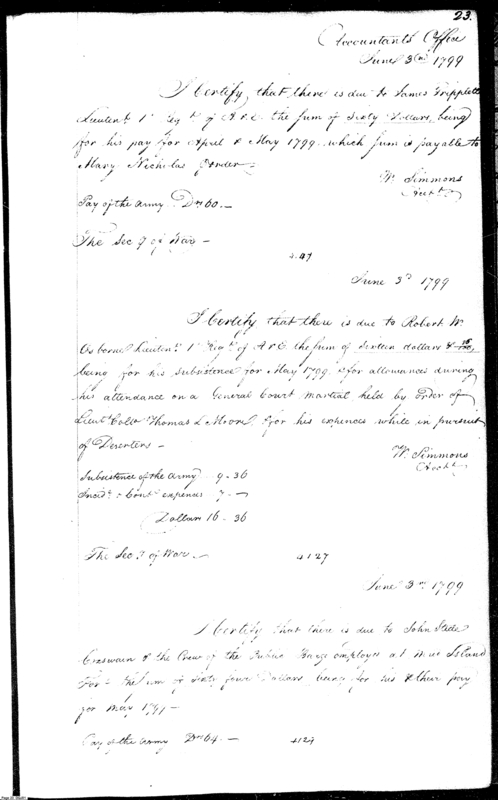 23.
Accountants Office
June 3rd 1799
I Certify, that there is due to James Tripplett
Lieutent 1st Regt of A & E the sum of Sixty Dollars, being
for his pay for April & May 1799 which sum is payable to
Mary Nicholas Order
Wm Simmons
Acct
Pay of the Army Drs 60.—
The Secy of War —
June 3d 1799
I Certify that there is due to Robert W.
Osborne Lieutent 1st Regt of A & E the sum of Sixteen dollars &
being for his Subsistence for May 1799 & for allowances during
his attendance on a General Court Martial held by order of
Lieut Colo Thomas L Moore & for his expences while in pursuit
of Deserters —
Wm Simmons
Acct
Subsistence of the Army 9 - 36
Incidt & Cont expences 7 —
Dollars 16 - 36
The Secy of War —
4127
June 3rd 1799
I Certify that there is due to John Slade
Coxswain & the Crew of the Public Barge employed at Mud Island
Fort the sum of Sixty four Dollars being for his & their pay
for May 1799 —
Pay of the Army Drs 64. —